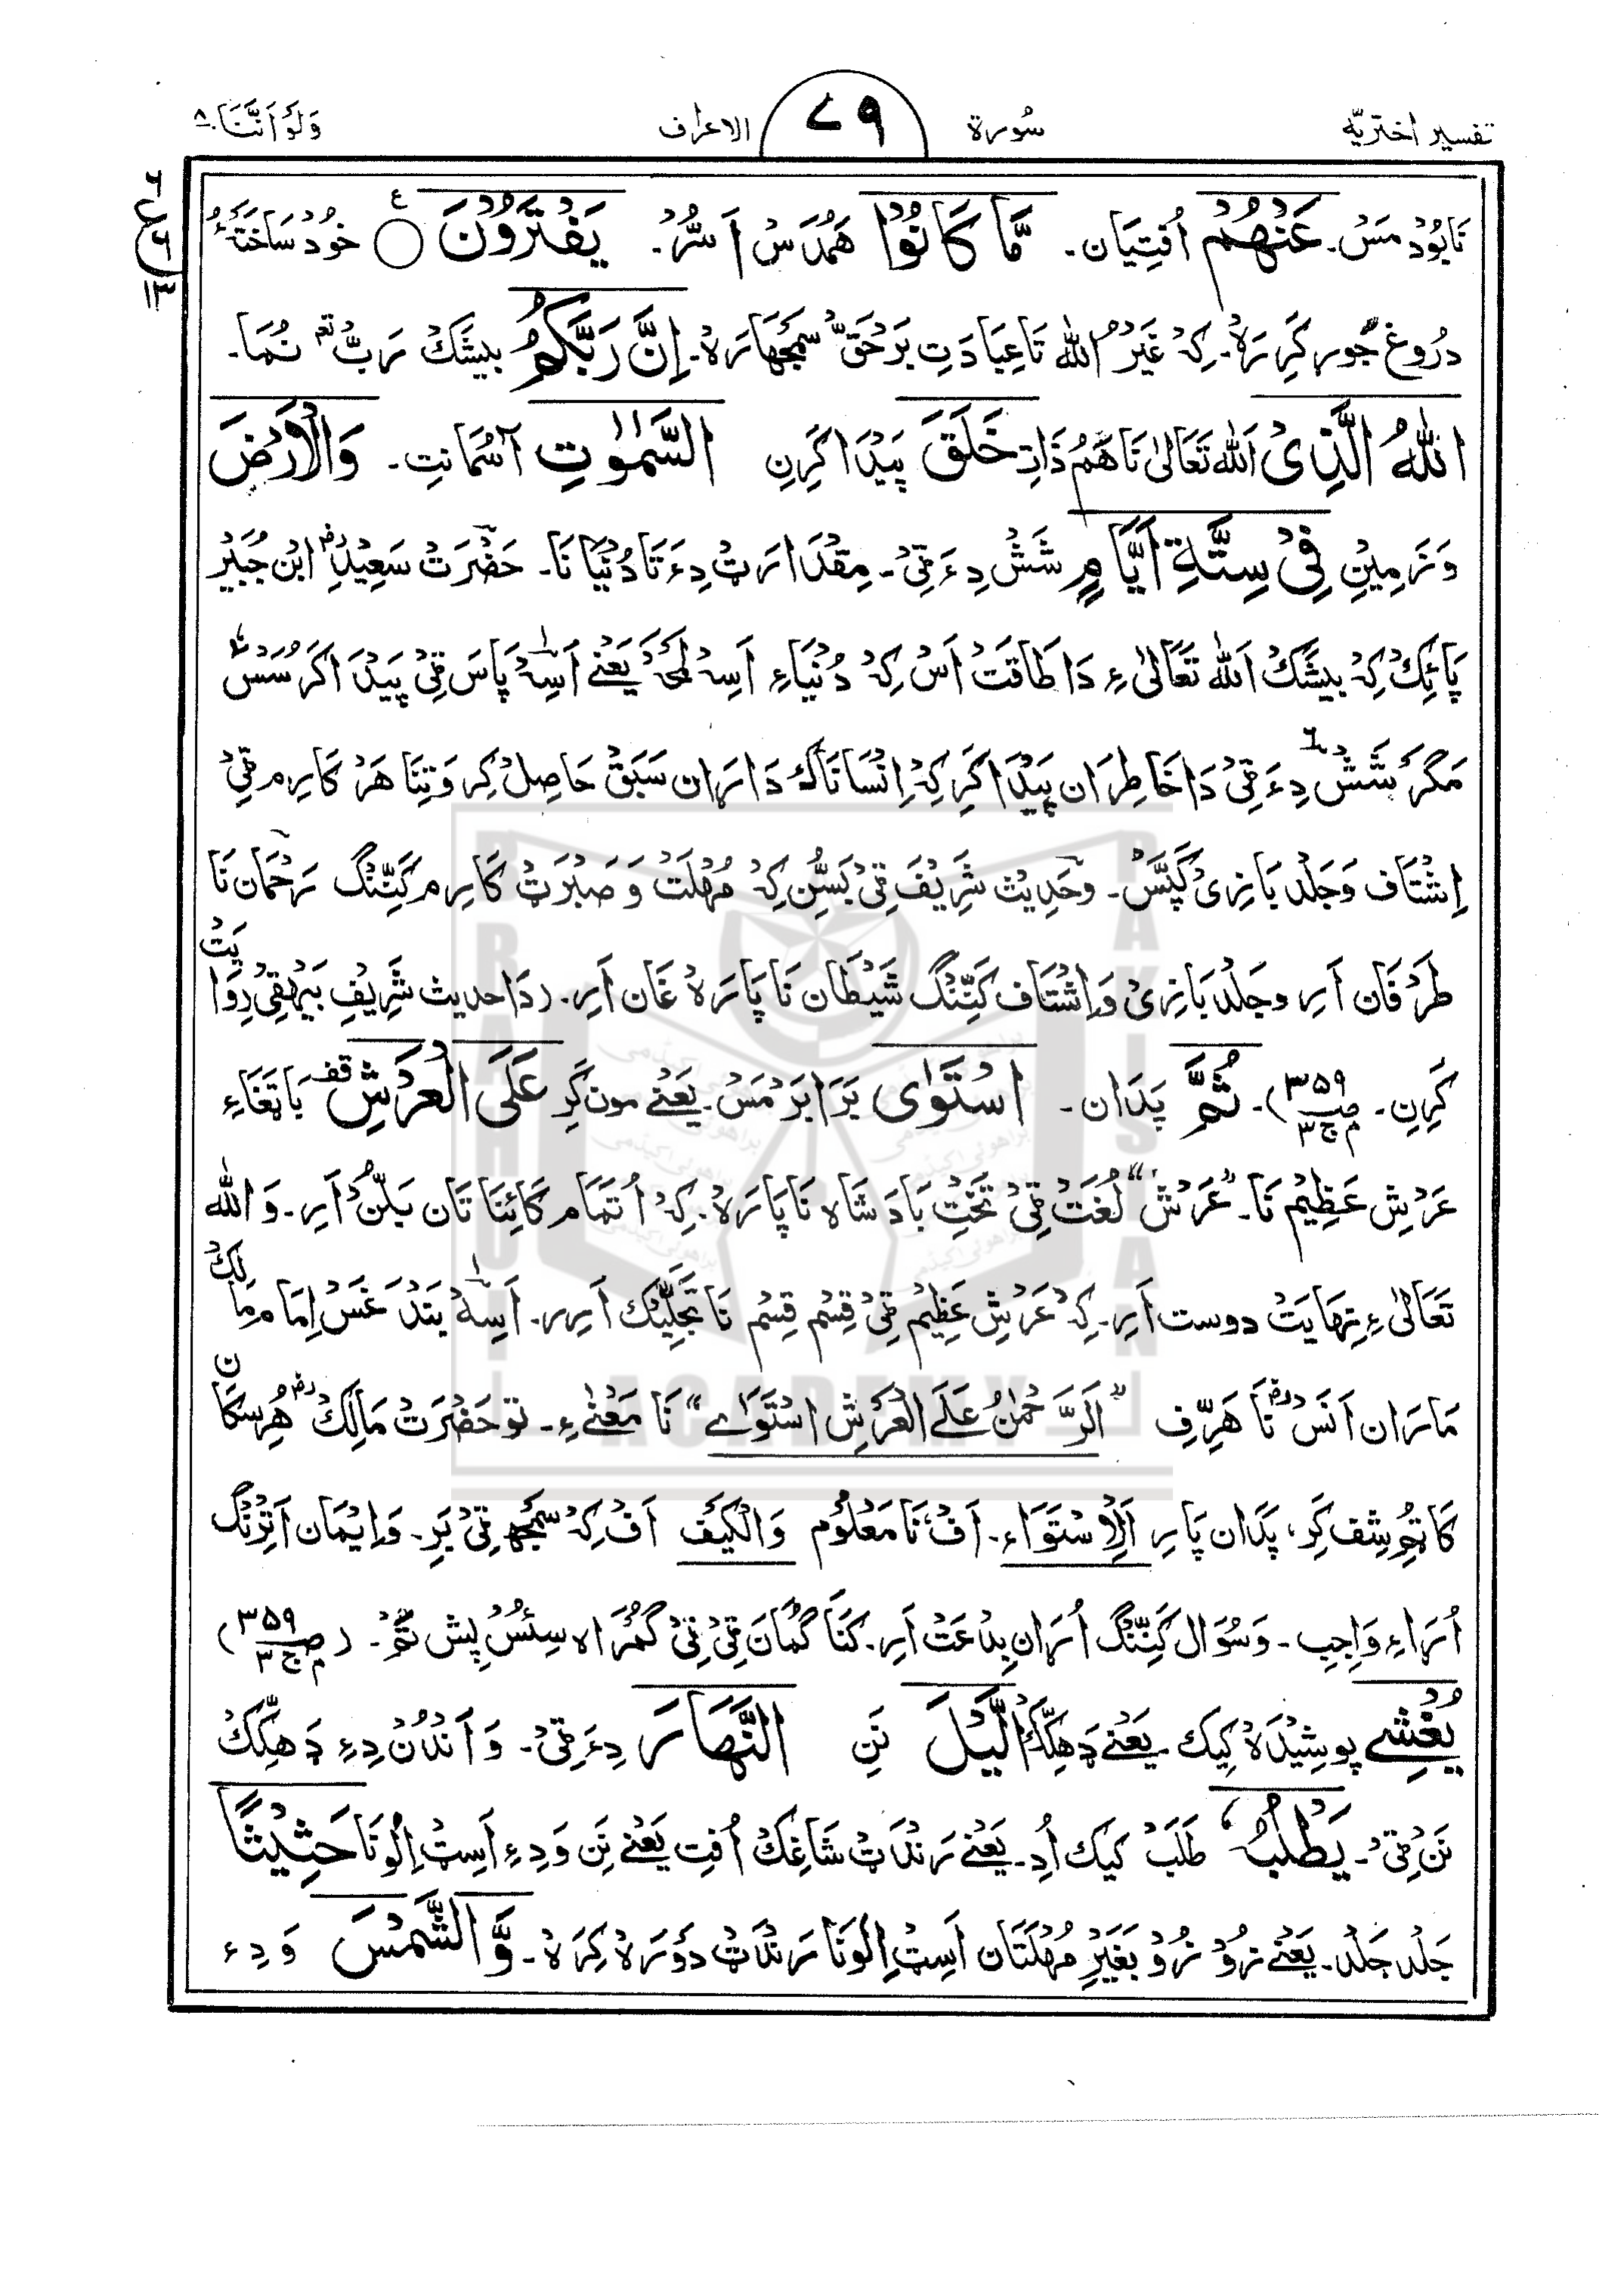 تفسیر اختریّه سُورة ۷۹ الاعراف وَلَوْاَنَّنَا ۸
نَابُوْد مَسْ۔ عَنْهُمْ اُفتِیَان۔ مَّا كَانُوْا هَمُدَسْ اَسُّرْ۔ یَفْتَرُوْنَ ○ خُوْد سَاخْتَہُ
۶ ع ۶ ۱۳
دُروغ جُور کَرِرَهْ۔ کِہْ غَیْرُ اللّٰه تَا عِبَادَتِ بَرْحَقّ سَمْجھَارَهْ۔ اِنَّ رَبَّكُمُ بیشَکْ رَبّ نُمَا۔
اللّٰهُ الَّذِیْ اَللّٰه تَعَالیٰ نَا هَمُ ذَاتِ خَلَقَ پَیْدَا کَرِنِ السَّمٰوٰتِ آسْمَانتِ۔ وَالْاَرْضَ
وَزَمِیْنِ فِیْ سِتَّةِ اَیَّامٍ شَشْ دِءَ ٹِیْ۔ مِقْدَارَٹْ دِءَ تَا دُنْیَا نَا۔ حَضْرَتْ سَعِیْدِ ابْن جُبَیْر
پَائِکْ کِہْ بیشَکْ اَللّٰه تَعَالیٰ ءِ دَا طَاقَتْ اَسْ کِہْ دُنْیَاءِ اَسِہْ لمحَہْ یَعْنے اَسِہْ پَاسَ ٹِیْ پَیْدَا کَرُسَسْ
مَگَرْ شَشْ دِءَ ٹِیْ دَا خَاطِرَان پَیْدَا کَرِ کِہْ اِنْسَانَاکْ دَارَان سَبَقْ حَاصِلْ کِر وَتِنَا هَرْ کَارِم ٹِیْ
اِشْتَاف وَجَلْد بَازِیْ کَپَسْ۔ وحَدِیث شَرِیْفَ ٹِیْ بَسُّنِ کِہْ مُهْلَتْ وَ صَبْرَٹْ کَارِم کَنِّنْگ رَحْمَان نَا
طَرْفَان اَرِ وجَلْد بَازِیْ وَاِشْتَاف کَنِّنْگ شَیْطَان نَا پَارَهْ غَان اَرِ۔ (دَا حدیث شَرِیْفِ بَیْهَقِیْ رِوَایَتْ
کَرِنِ۔ صـ ۳۵۹ م ج ۳)۔ ثُمَّ پَدَان۔ اسْتَوٰی بَرَابَرْ مَسْ۔ یَعْنے مون کَرِ عَلَی الْعَرْشِ قف بَا تَخَاءِ
عَرْشِ عَظِیْمْ نَا۔ "عَرْش" لُغَتْ ٹِیْ تَخْتِ بَادشَاه نَا پَارَهْ۔ کِہْ اُ تَمَّام کَائِنَاتَان بَلُّنْ اَرِ۔ وَاللّٰه
تَعَالیٰ ءِ نِہَایَتْ دوست اَرِ۔ کِہْ عَرْشِ عَظِیْم ٹِیْ قِسْم قِسْم نَا تَجَلِّیَّکْ اَرِر۔ اَسِہْ بَنْدَغَسْ اِمَام مَالِکْ
مَارَان اَنَسْ نَا هَرِّفِ "اَلرَّحْمٰنُ عَلَى الْعَرْشِ اسْتَوٰے" نَا مَعْنٰے ءِ۔ تو حَضْرَتْ مَالِکْ هُرسِکَان
کَاٹُم شِف کَرِ، پَدَان پَارِ اَلْاِسْتَوَاء۔ اَفْ نَامَعْلُوْم وَالْکَیْف اَفْ کِہْ سَمْجھ ٹِیْ بَرِ۔ وَاِیْمَان اَتِنْگ
اُرَاءِ وَاجِب۔ وَسُوَال کَنِّنْگ اُرَان بِدْعَتْ اَرِ۔ کَنَا گُمَان ٹِیْ نِیْ گُمْرَاه سِئسْ پِش تَمّ۔ (صـ ۳۵۹ م ج ۳)
یُغْشِی پوشِیْدَہ کِیک۔ یَعْنے ڈَهکِّکْ الَّیْلَ نَنِ النَّهَارَ دِءَ ٹِیْ۔ وَ اَنْدُنْ دِءِ ڈَهکِّکْ
نَنْ ٹِیْ۔ یَطْلُبُهٗ طَلَبْ کیَک اُدِ۔ یَعْنے رَنْدَٹْ شَاغِکْ اُفتِ یَعْنے نَنِ وَدِءِ اَسِٹْ اِلُونَا حَثِیْثًا
جَلْد جَلْد۔ یَعْنے زُوْ زُوْ بَغَیْرِ مُهْلَتَان اَسِٹْ اِلُونَا رَنْدَٹْ دَوْرَهْ کِرَهْ۔ وَّالشَّمْسَ وَ دِءِ
BRAHUI
ACADEMY
PAKISTAN